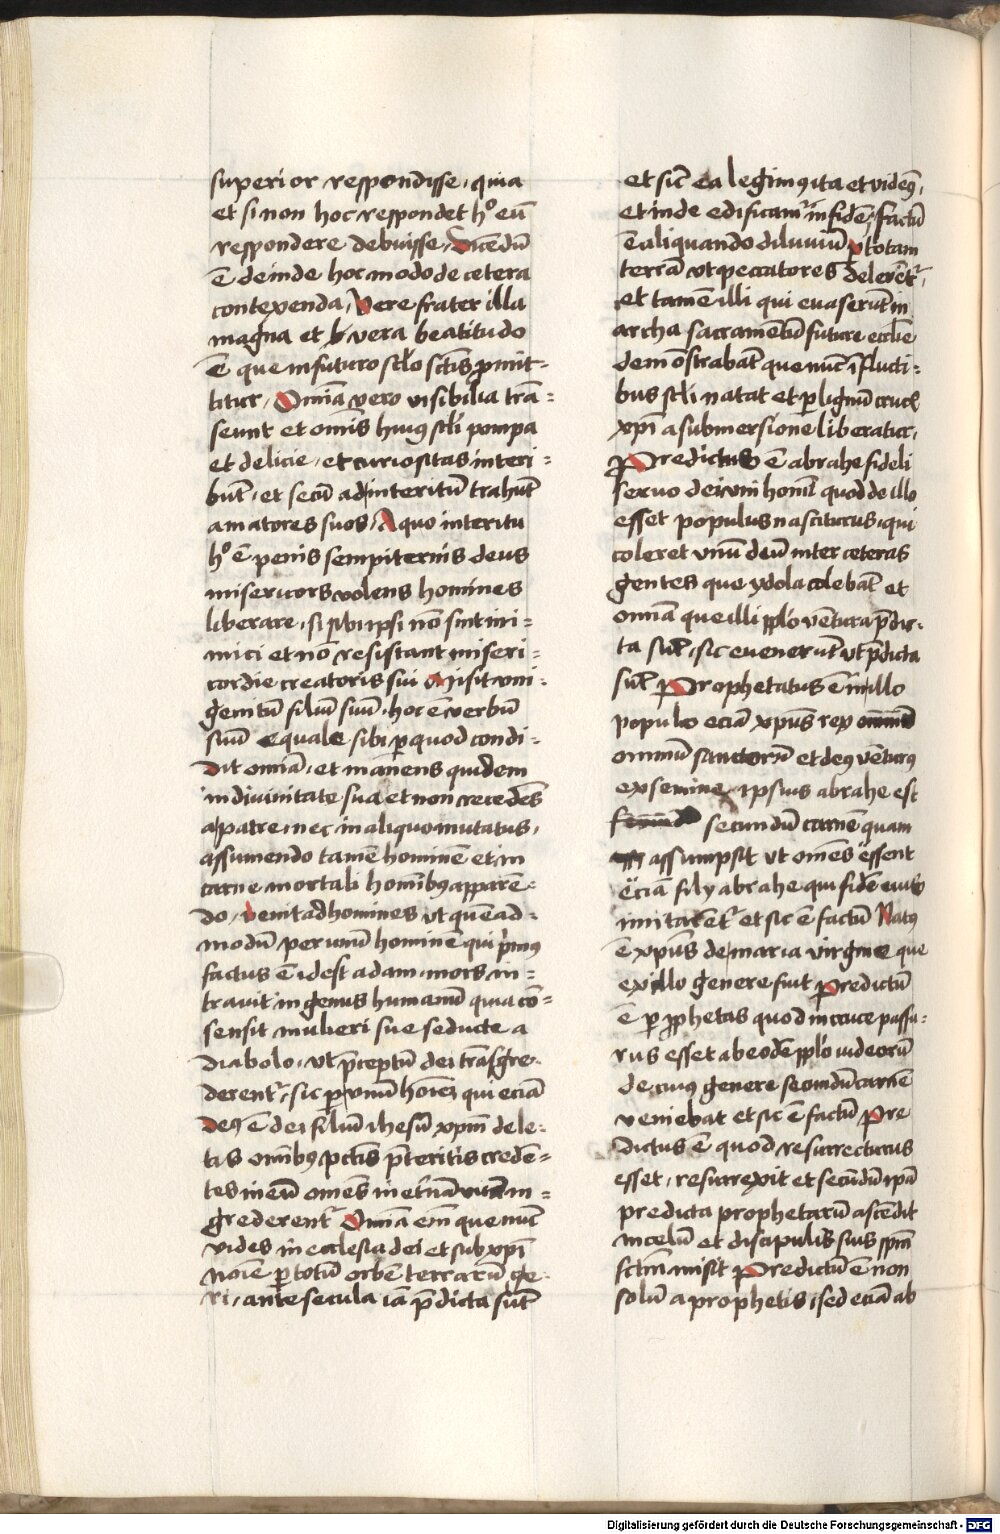 superior respondisse, quia
et si non hoc respondet hº eū
respondere debuisse, Dicēdū
ē deinde hoc modo de cetera
contexenda, Vere frater illa
magna et vera beatitudo
ē que in futuro sclo sctis pmit-
titur, Omīa vero visibilia trā-
seunt et omīs huiꝰ scli pompa
et delicie, et curiositas interi-
būt, et secū ad interitū trahūt
amatores suos, A quo interitu
hº ē penis sempiternis deus
misericors volens homines
liberare, si sibi ipsi nō sint ini-
mici et nō resistant miseri-
cordie creatoris sui Misit vni-
genitū filiū suū, hoc ē verbū
suū equale sibi ꝑ quod condi-
dit omīa, et manens quidem
in diuinitate sua et non recedēs
a patre, nec in aliquo mutatus,
assumendo tamē hominē et in
carne mortali homībꝰ apparē-
do, Venit ad homines vt quēad-
modū per unū hominē qui pimꝰ
factus ē idest adam, mors in-
trauit in genus humanū quia cō-
sensit mulieri sue seducte a
diabolo, vt pceptū dei trāsgre-
derent᷑, sic ꝑ vnū hoīez qui eciā
deꝰ ē dei filiū ihesū xpm̄ dele-
tis omībꝰ pctis pteritis credē-
tes in eū omēs in etnā vitā in-
grederent᷑ Omīa em̄ que nūc
vides in ecclesia dei et sub xpī
noīe ꝑ totū orbē terrarū ge-
ri, ante secula iā pdicta sūt
et sic̄ ea legimꝰ ita et videꝰ,
et inde edificam᷑ in fidē, factū
ē aliquando diluuiū ꝑ totam
terrā vt peccatores delerēt᷑,
et tamē illi qui euaserūt in
archa sacramētū future eccl̄ie
demōstrabāt que nūc ī flucti-
bus scli natat et ꝑ lignū crucꝭ
xpī a submersione liberatur,
Predictus ē abrahe fideli
seruo dei vni homī quod de illo
esset populus nasciturus, qui
coleret vnū deū inter ceteras
gentes que ydola colebāt et
omīa que illi pplo vētura pdic-
ta sūt, sic euenerūt vt pdicta
sūt Prophetatus ē in illo
populo eciā xpūs rex
omniū sanctorū et deꝰ vēturꝰ
ex semine ipsius abrahe est
secundū carnē quam
assumpsit vt omēs essent
eciā filij abrahe qui fidē eius
imitarēt᷑ et sic ē factū Natꝰ
ē xpūs de maria virgine que
ex illo genere fuit Predictū
ē ꝑ pphetas quod in cruce passu-
rus esset ab eodē pplo iudeorū
de cuius genere secundū carnē
veniebat et sic ē factū Pre
dictus ē quod resurrecturus
esset, resurrexit et secūdū ipā
predicta prophetarū ascēdit
in celū et discipulis suis spm̄
sctm̄ misit Predictū ē non
solū a prophetis, sed eciā ab
Digitalisierung gefördert durch die Deutsche Forschungsgemeinschaft - DFG